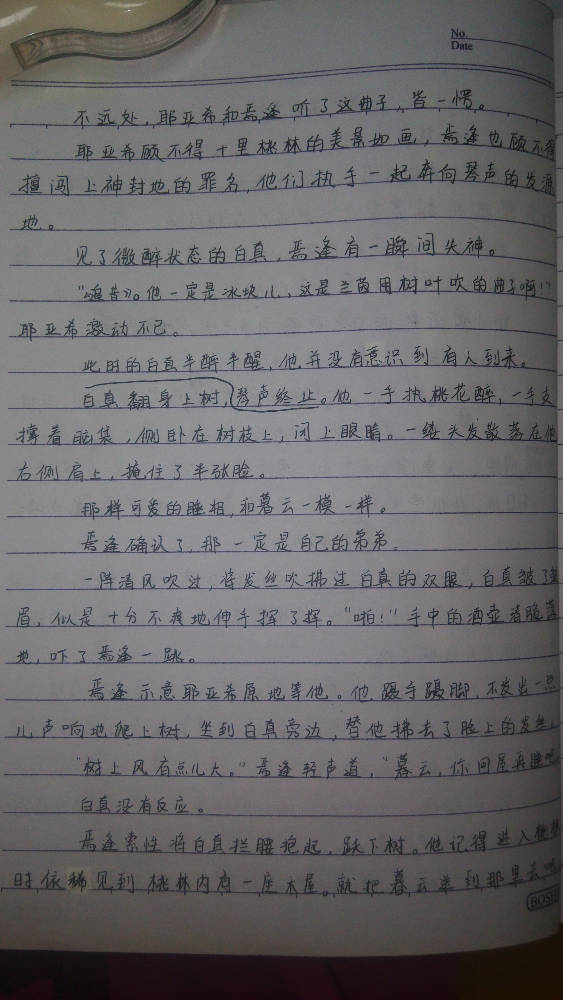 No.
Date
不远处，耶亚希和焉逢听了这曲子，皆一愣。
耶亚希顾不得十里桃林的美景如画，焉逢也顾不得
擅闯上神封地的罪名，他们执手一起奔向琴声的发源
地。
见了微醉状态的白真，焉逢有一瞬间失神。
他一定是冰块儿，这是兰茵用树叶吹的曲子啊！”
耶亚希激动不已。
此时的白真半醉半醒，他并没有意识到有人到来。
白真翻身上树，琴声终止。他一手执桃花醉，一手支
撑着脑袋，侧卧在树枝上，闭上眼睛。一缕头发散落在他
右侧肩上，掩住了半张脸。
那样可爱的睡相，和暮云一模一样。
焉逢确认了，那一定是自己的弟弟。
一阵清风吹过，将发丝吹拂过白真的双眼，白真皱了皱
眉，似是十分不爽地伸手挥了挥。“啪！”手中的酒壶清脆落
地，吓了焉逢一跳。
焉逢示意耶亚希原地等他。他蹑手蹑脚，不发出一点
儿声响地爬上树，坐到白真旁边，替他拂去了脸上的发丝。
“树上风有点儿大。”焉逢轻声道，“暮云，你回屋再睡吧
白真没有反应。
焉逢索性将白真拦腰抱起，跃下树。他记得进入桃林
时依稀见到桃林内有一座木屋。就把暮云送到那里去吧
BOSHI